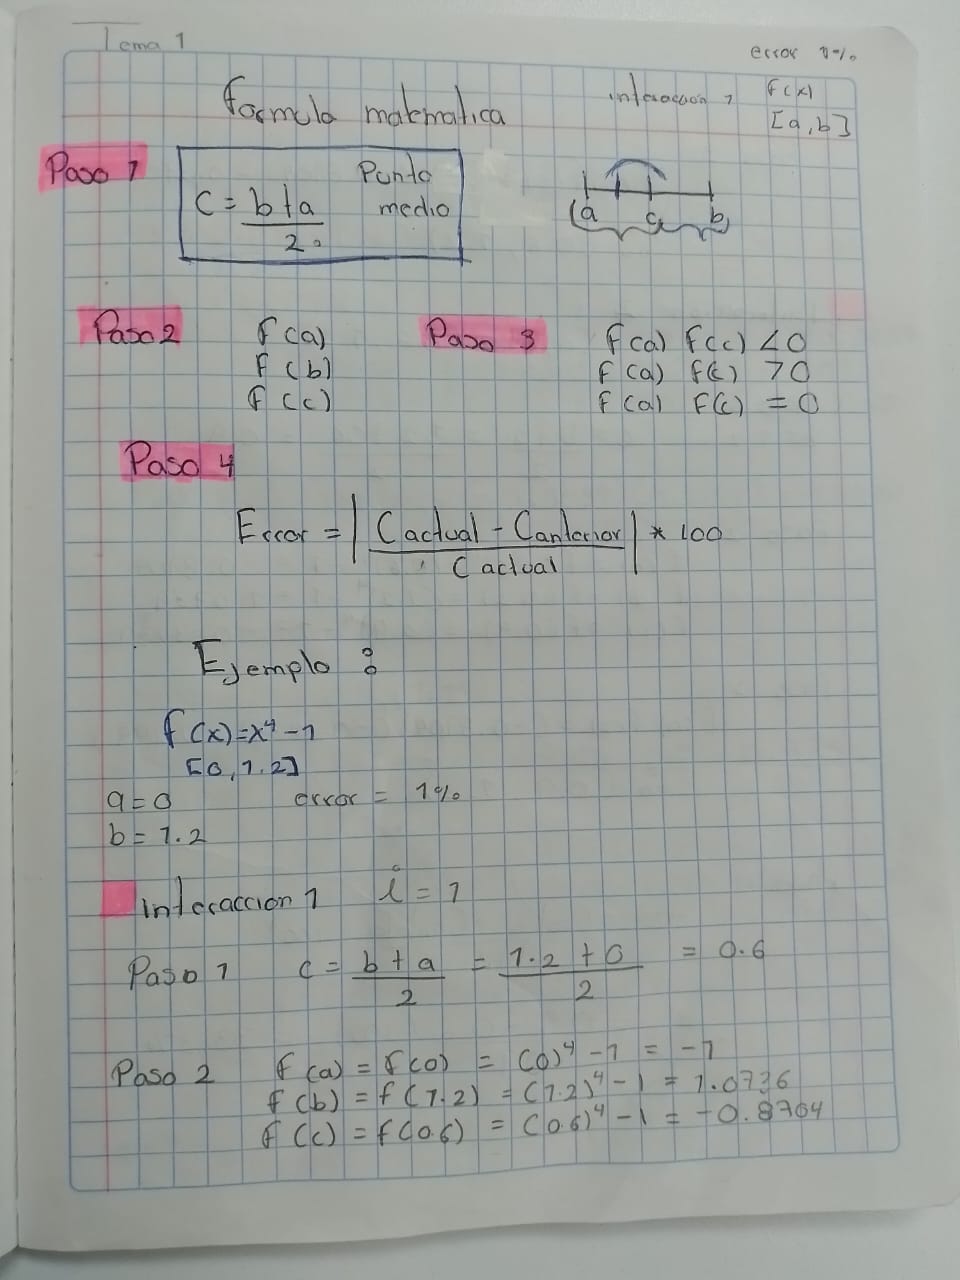 Tema 1
error 1%
formula matematica
interaccion 1
f(x)
[a,b]
Paso 1
c = b+a / 2
Punto medio
(a c b)
Paso 2
f(a)
f(b)
f(c)
Paso 3
f(a) f(c) <0
f(a) f(c) >0
f(a) f(c) = 0
Paso 4
Error = | C actual - C anterior / C actual | * 100
Ejemplo :
f(x)=x⁴-1
[0,1.2]
a=0 error = 1%
b=1.2
interaccion 1 i = 1
Paso 1 c = b+a / 2 = 1.2+0 / 2 = 0.6
Paso 2 f(a) = f(0) = (0)⁴ -1 = -1
f(b) = f(1.2) = (1.2)⁴ - 1 = 1.0736
f(c) = f(0.6) = (0.6)⁴ - 1 = -0.8704